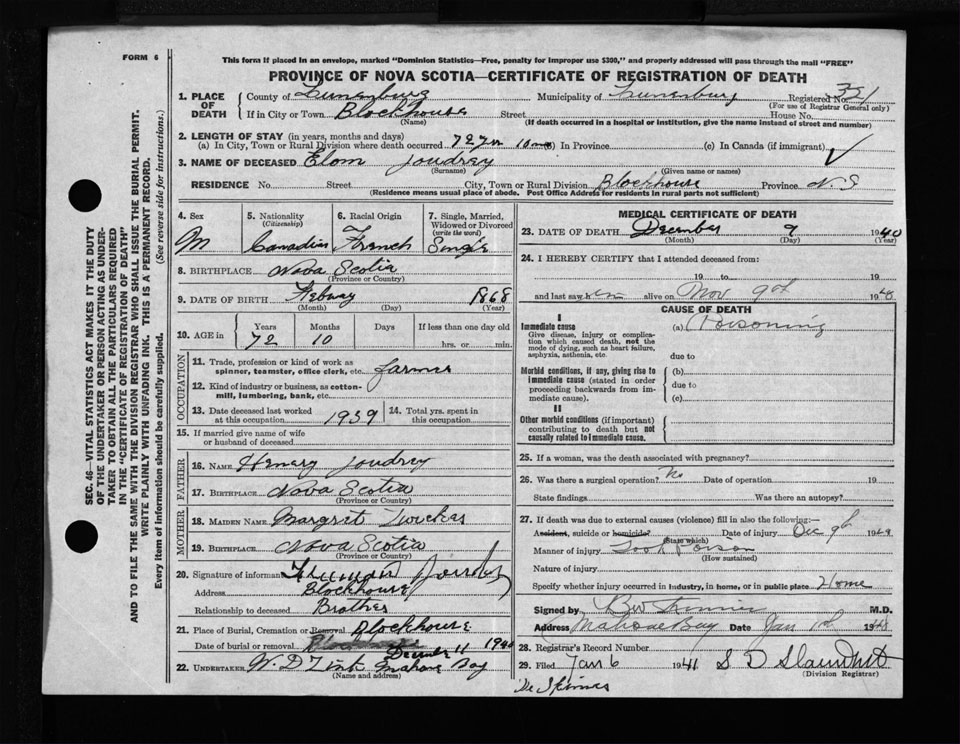 FORM 6
This form if placed in an envelope, marked "Dominion Statistics—Free, penalty for improper use $300," and properly addressed will pass through the mail "FREE"
PROVINCE OF NOVA SCOTIA—CERTIFICATE OF REGISTRATION OF DEATH
1. PLACE OF DEATH County of Lunenburg Municipality of Lunenburg Registered No. 321
(For use of Registrar General only)
If in City or Town Blockhouse Street House No.
(Name) (If death occurred in a hospital or institution, give the name instead of street and number)
2. LENGTH OF STAY (in years, months and days)
(a) In City, Town or Rural Division where death occurred 72 yrs 10 mos In Province (c) In Canada (if immigrant)
3. NAME OF DECEASED Elom Joudrey
(Surname) (Given name or names)
RESIDENCE No. Street City, Town or Rural Division Blockhouse Province N.S
(Residence means usual place of abode. Post Office Address for residents in rural parts not sufficient)
4. Sex M
5. Nationality (Citizenship) Canadian
6. Racial Origin French
7. Single, Married, Widowed or Divorced (write the word) Single
8. BIRTHPLACE Nova Scotia
(Province or Country)
9. DATE OF BIRTH 1868
(Month) (Day) (Year)
10. AGE in Years 72 Months 10 Days If less than one day old hrs. or min.
OCCUPATION
11. Trade, profession or kind of work as spinner, teamster, office clerk, etc. farmer
12. Kind of industry or business, as cotton-mill, lumbering, bank, etc.
13. Date deceased last worked at this occupation 1939
14. Total yrs. spent in this occupation
15. If married give name of wife or husband of deceased
FATHER
16. NAME Henery Joudrey
17. BIRTHPLACE Nova Scotia
(Province or Country)
MOTHER
18. MAIDEN NAME Margret
19. BIRTHPLACE Nova Scotia
(Province or Country)
20. Signature of informant Freeman
Address Blockhouse
Relationship to deceased Brother
21. Place of Burial, Cremation or Removal Blockhouse
Date of burial or removal December 11 1940
22. UNDERTAKER W. D Zink Mahone Bay
(Name and address)
MEDICAL CERTIFICATE OF DEATH
23. DATE OF DEATH December 9 1940
(Month) (Day) (Year)
24. I HEREBY CERTIFY that I attended deceased from:
19 to 19
and last saw alive on Nov 9th 1940
CAUSE OF DEATH
I
Immediate cause (a) Poisoning
Give disease, injury or complication which caused death, not the mode of dying, such as heart failure, asphyxia, asthenia, etc.
due to
Morbid conditions, if any, giving rise to immediate cause (stated in order proceeding backwards from immediate cause).
(b)
due to
(c)
II
Other morbid conditions (if important) contributing to death but not causally related to immediate cause.
25. If a woman, was the death associated with pregnancy?
26. Was there a surgical operation? No Date of operation 19
State findings Was there an autopsy?
27. If death was due to external causes (violence) fill in also the following:—
Accident, suicide or homicide? Date of injury Dec 9th 1940
(State which)
Manner of injury Took Poison
(How sustained)
Nature of injury
Specify whether injury occurred in industry, in home, or in public place Home
Signed by M.D.
Address Mahone Bay Date Jan 1940
28. Registrar's Record Number
29. Filed Jan 6 1941
(Division Registrar)
SEC. 46—VITAL STATISTICS ACT MAKES IT THE DUTY
OF THE UNDERTAKER OR PERSON ACTING AS UNDER-
TAKER TO OBTAIN ALL THE PARTICULARS REQUIRED
IN THE "CERTIFICATE OF REGISTRATION OF DEATH"
AND TO FILE THE SAME WITH THE DIVISION REGISTRAR WHO SHALL ISSUE THE BURIAL PERMIT.
WRITE PLAINLY WITH UNFADING INK. THIS IS A PERMANENT RECORD.
Every item of information should be carefully supplied. (See reverse side for instructions.)